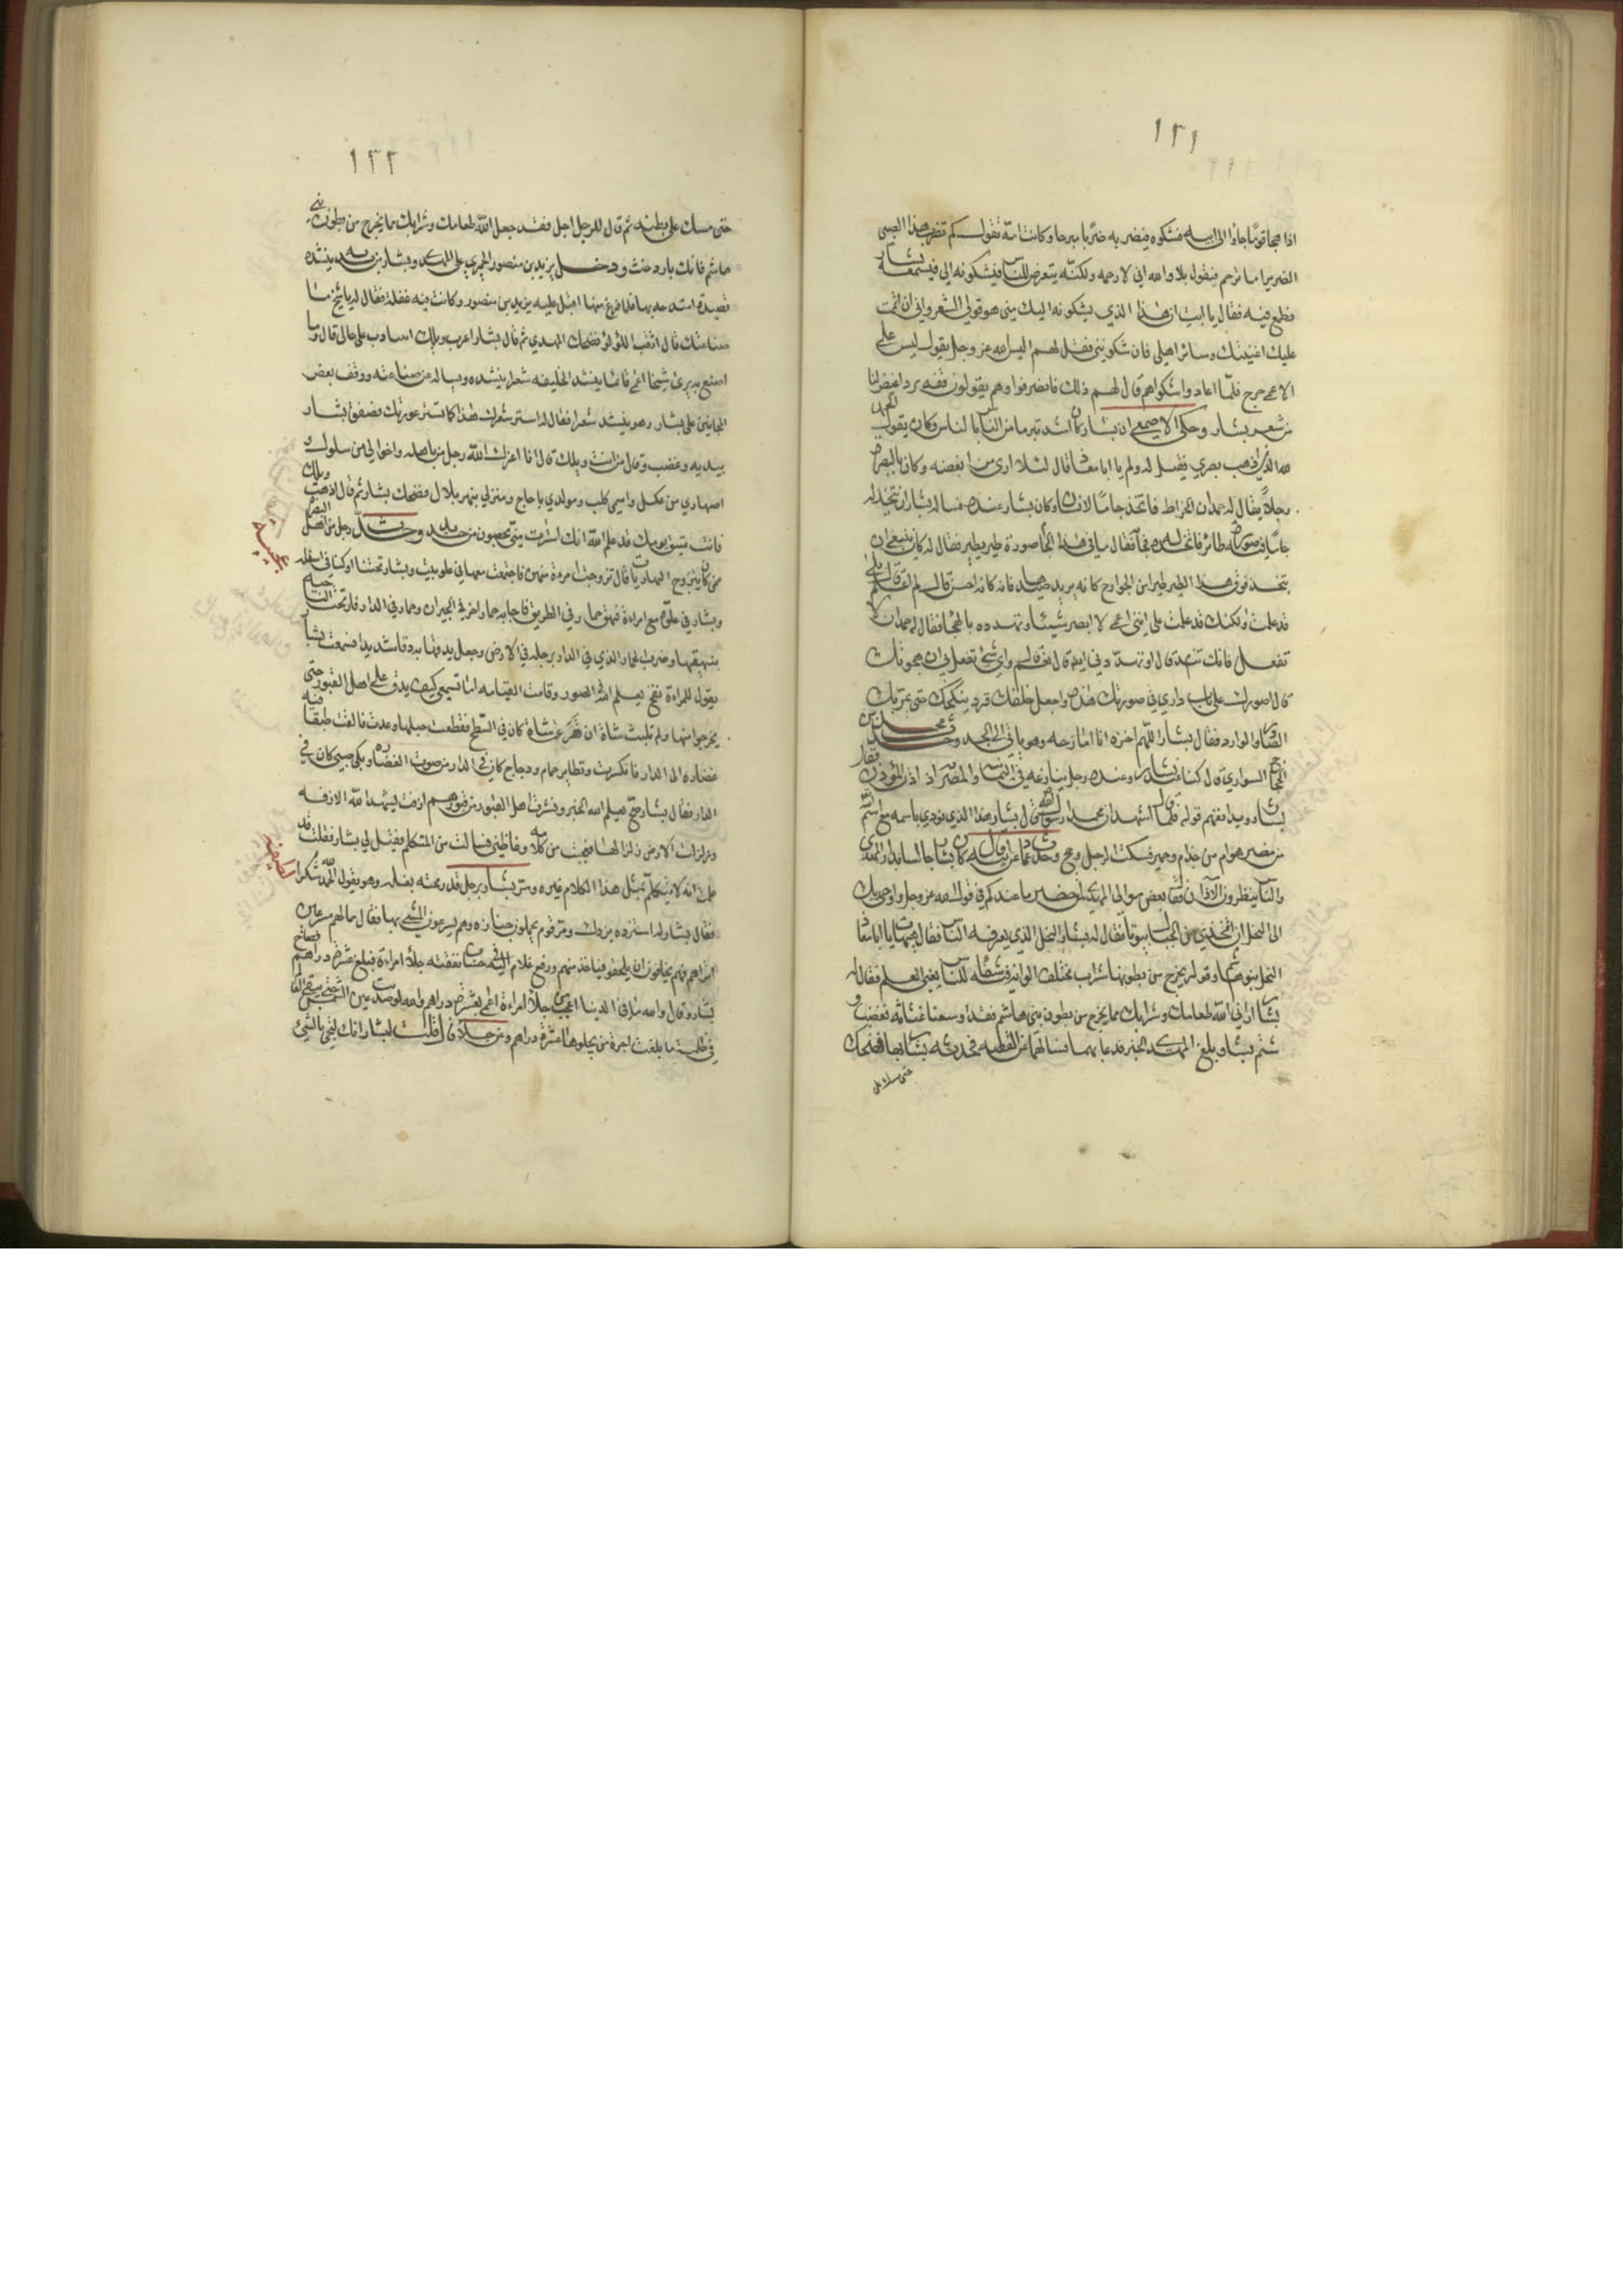 ١٢١
اذا هجا قوما جاؤا الى ابيه فشكوه فيضربه ضربا مبرحا وكانت امه تقول كم تضرب هذا الصبي
الضرير اما ترحم فيقول بلا والله اني لارحمه ولكنه يتعرض للناس فيشكونه الي فيسمعه بشار
فطمع فيه فقال يا ابت ان هذا الذي يشكونه اليك مني هو قولي الشعر واني ان اتممت
عليك اغنيتك وسائر اهلي فان شكوني فقل لهم اليس الله عز وجل يقول ليس على
الاعمى حرج فلما اعادوا شكواهم قال لهم ذلك فانصرفوا وهم يقولون فقه برد اغيض لنا
من شعر بشار وحكى الاصمعي ان بشار كان اشد تبرما من الناس بالناس وكان يقول الحمد
لله الذي اذهب بصري فقيل له ولم يا ابا معاذ قال لئلا ارى من ابغضه وكان بالبصرة
رجلا يقال له حمدان الخراط فاتخذ جاما لانسان وكان بشار عنده فساله بشار ان يتخذ له
جاما فيه صورة طائر فاتخذ له وجاء فقال ما في هذا الجام صورة طير يطير فقال له كان ينبغي ان
يتخذ فوق هذا الطير طيرا من الجوارح كانه يريد صيدها فانه كان احسن قال لم اعلم قال بلى
قد علمت ولكنك قد علمت على انني اعمى لا ابصر شيئا وتهدده بالهجا فقال له حمدان لا
تفعل فانك تندم قال او تهددني ايضا قال نعم قال واي شيء تفعل في ان هجوتك
قال اصورك على باب داري في صورتك هذه واجعل خلفك قرد ينكحك حتى يمر بك
الصادر والوارد فقال بشار اللهم اخزه انا امازحه وهو يابى الا الجد وحدث محمد بن
الحجاج السواري قال كنا عند بشار وعنده رجل ينازعه في اليمن والمضر اذ اذن المؤذن فقال
بشار رويدا تفهم قوله فلما قال اشهد ان محمدا رسول الله قال بشار هذا الذي نودي باسمه مع اسم الله
من مضر هو ام من جذام وحمير فسكت الرجل وحكى عمن قال كان بشار جالسا بدار المهدي
والناس ينظرون الاذن فقال بعض موالي المهدي لمن حضر ما عندكم في قول الله عز وجل واوحى ربك
الى النحل ان اتخذي من الجبال بيوتا فقال له بشار النحل الذي يعرفه الناس فقال هيهات يا ابا معاذ
النحل بنو هاشم وقوله يخرج من بطونها شراب مختلف الوانه فيه شفاء للناس يعني العلم فقال له
بشار اراني الله طعامك وشرابك مما يخرج من بطون بني هاشم فقد اوسعنا غثاثة فغضب و
شتم بشار وبلغ المهدي الخبر فدعا بهما فسالهما عن القصة فحدثه بشار بها فضحك
حتى مسك على
١٢٢
حتى مسك على بطنه ثم قال للرجل اجل فقد جعل الله طعامك وشرابك مما يخرج من بطون بني
هاشم فانك بارد غث ودخل يزيد بن منصور الحميري على المهدي وبشار بين يديه ينشده
قصيدة امتدحه بها فلما فرغ منها اقبل عليه يزيد بن منصور وكانت فيه غفلة فقال له يا شيخ ما
صناعتك قال اثقب اللؤلؤ فضحك المهدي ثم قال بشار اعزب ويلك اتنادب على خالي قال وما
اصنع به يرى شيخا اعمى قائما ينشد الخليفه شعرا ينشده ويساله عن صناعته ووقف بعض
المجانين على بشار وهو ينشد شعرا فقال له استر شعرك هذا كما تستر عورتك فصفق بشار
بيديه وغضب وقال من انت ويلك قال انا اعزك الله رجل من باهله واخوالي من سلول و
اصهاري من عكل واسمي كلب ومولدي باضاخ ومنزلي بنهر بلال فضحك بشار ثم قال اذهب ويلك
فانت عتيق لومك قد علم الله انك استترت مني بحصون من حديد وحدث رجل من اهل البصرة
ممن كان يتزوج النهاريات قال تزوجت امراة منهن فاجتمعت معها في علو بيت وبشار تحتنا او كنا في اسفله
وبشار في علوه مع امراة فنهق حمار في الطريق فاجابه حمار اخر في الجيران وحمار في الدار فارتجت الناحيه
بنهيقها وضرب الحمار الذي في الدار برجله في الارض وجعل يدقها به دقا شديدا فسمعت بشار
يقول للمراة نفخ يعلم الله في الصور وقامت القيامه اما تسمعي كيف يدق على اهل القبور حتى
يخرجوا منها ولم تلبث شاة ان فزعت شاة كان في السطح فقطعت حبلها وعدت فالقت طبقا فيه
غضاره الى الدار فانكسرت وتطاير حمام ودجاج كان في الدار من صوت الغضاره وبكى صبي كان في
الدار فقال بشار صح يعلم الله الخبر ونشرت اهل القبور من قبورهم ازفت يشهد الله الازفه
وزلزلت الارض زلزالها فعجبت من كلامه وغاظني فسالت من المتكلم فقيل لي بشار فقلت قد
علمت انه لا يتكلم بمثل هذا الكلام غيره ومر بشار برجل قد رمحته بغله وهو يقول الحمد لله شكرا
فقال بشار له استزده يزدك ومر قوم يحملون جنازه وهم يسرعون المشي بها فقال ما لهم مسرعين
اتراهم سرقوه فهم يخافون ان يلحقوا فياخذ منهم ورفع غلام اليه في حساب نفقته جلا مراة عشرة دراهم فصاح
بشار وقال والله ما في الدنيا اعجب من جلا مراة اعمى بعشرة دراهم والله لو صدئت عين الشمس حتى يبقى العالم
في ظلمة ما بلغت اجرة من يجلوها عشرة دراهم وعن خلاد قال قلت لبشار انك لتجي بالشيئ